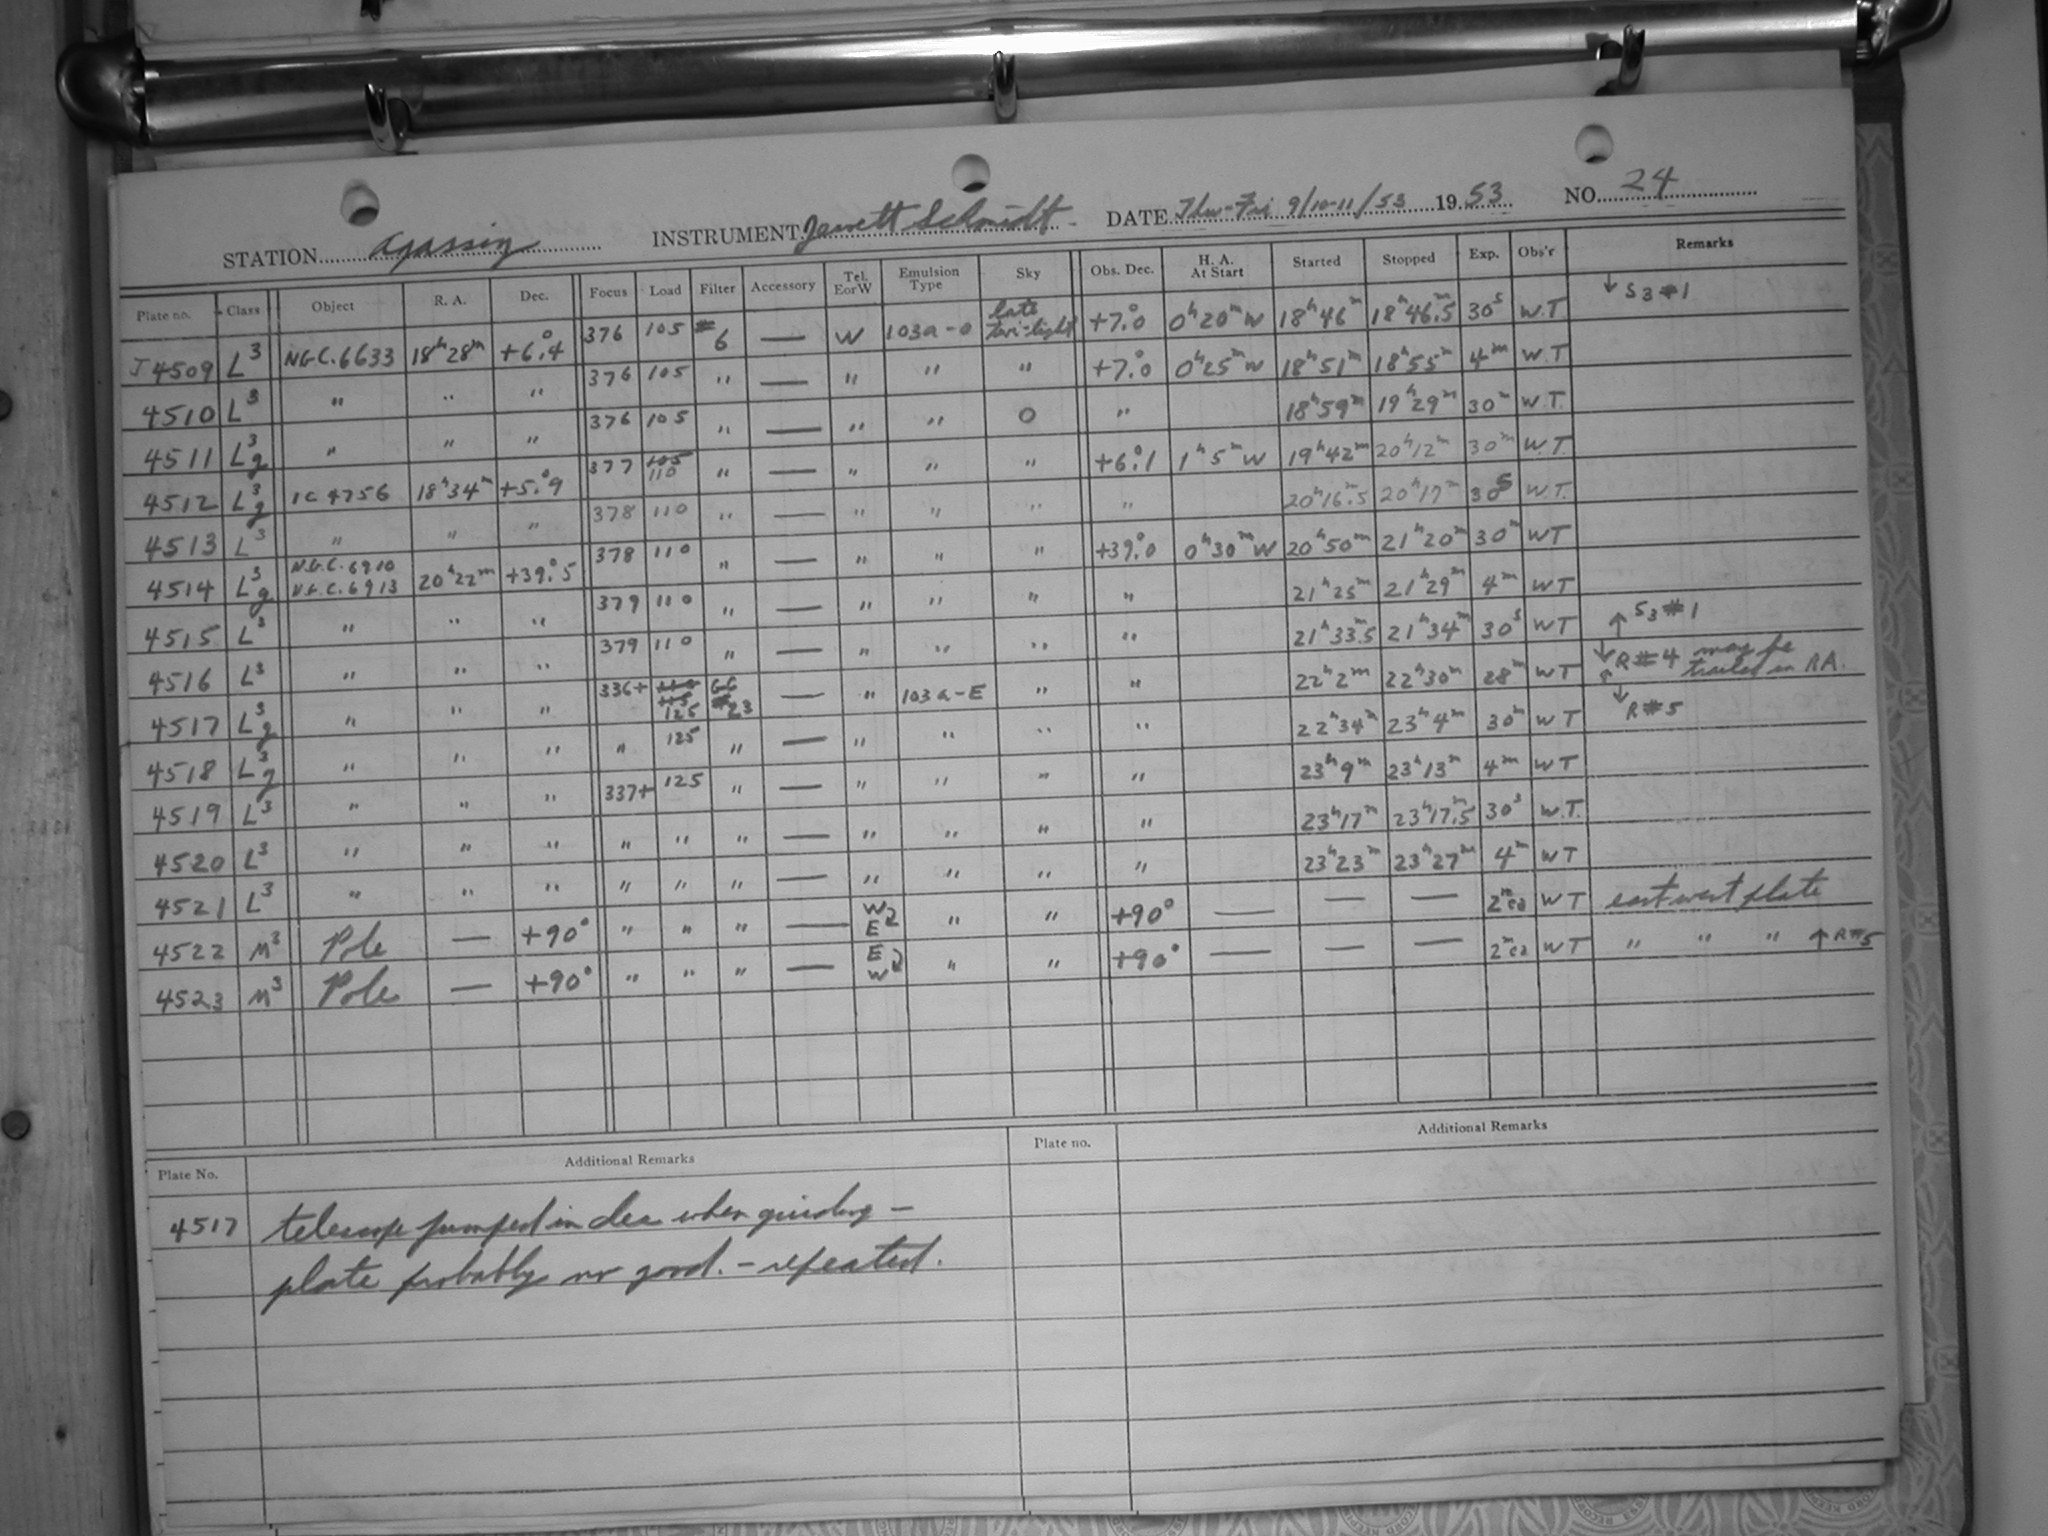 STATION Agassiz INSTRUMENT Jewett Schmidt DATE Thu-Fri 9/10-11/53 1953 NO. 24
Plate no. Class Object R. A. Dec. Focus Load Filter Accessory Tel. EorW Emulsion Type Sky Obs. Dec. H. A. At Start Started Stopped Exp. Obs'r Remarks
J 4509 L3 N.G.C. 6633 18h28m +6°.4 376 105 #6 — W 103a-O late twi-light +7°.0 0h20mW 18h46m 18h46m.5 30s W.T ↓ S3 #1
4510 L3 " " " 376 105 " — " " " +7°.0 0h25mW 18h51m 18h55m 4m W.T
4511 L3g " " " 376 105 " — " " O " 18h59m 19h29m 30m W.T.
4512 L3g IC 4756 18h34m +5°.9 377 105 110 " — " " " +6°.1 1h5mW 19h42m 20h12m 30m W.T.
4513 L3 " " " 378 110 " — " " " " 20h16m.5 20h17m 30s W.T.
4514 L3g N.G.C. 6910 N.G.C. 6913 20h22m +39°.5 378 110 " — " " " +39°.0 0h30mW 20h50m 21h20m 30m WT
4515 L3 " " " 379 110 " — " " " " 21h25m 21h29m 4m WT
4516 L3 " " " 379 110 " — " " " " 21h33m.5 21h34m 30s WT ↑ S3 #1
4517 L3g " " " 336+ 110 115 125 GG #23 — " 103a-E " " 22h2m 22h30m 28m WT ↓ R#4 may be trailed in RA. ↑
4518 L3g " " " " 125 " — " " " " 22h34m 23h4m 30m WT ↓ R#5
4519 L3 " " " 337+ 125 " — " " " " 23h9m 23h13m 4m WT
4520 L3 " " " " " " — " " " " 23h17m 23h17m.5 30s W.T.
4521 L3 " " " " " " — " " " " 23h23m 23h27m 4m WT
4522 M3 Pole — +90° " " " — W E " " +90° — — — 2m ea WT east west plate
4523 M3 Pole — +90° " " " — E W " " +90° — — — 2m ea WT " " " ↑ R#5
Plate No. Additional Remarks Plate no. Additional Remarks
4517 telescope jumped in dec when guiding —
plate probably no good. — repeated.